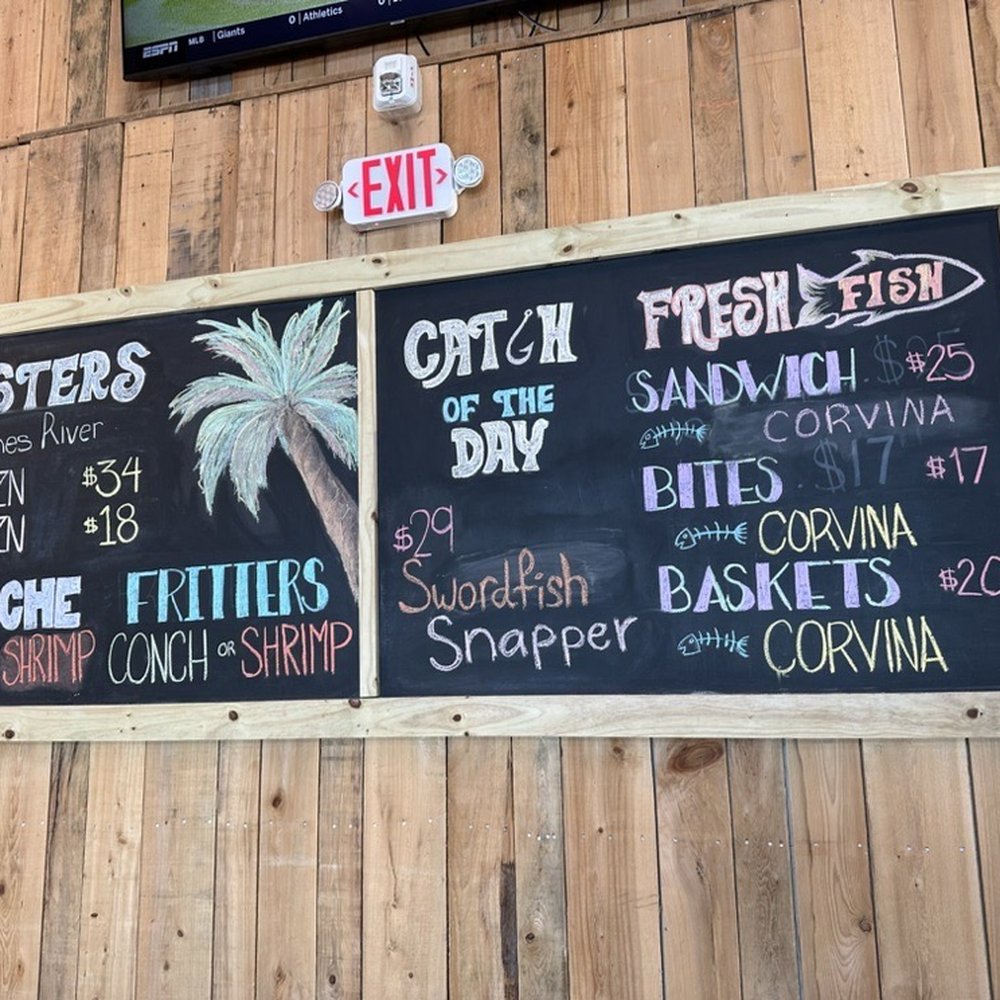 ESPN MLB | Giants 0 | Athletics 0
EXIT
STERS
nes River
ZN $34
ZN $18
CHE
SHRIMP
FRITTERS
CONCH OR SHRIMP
CATCH
OF THE
DAY
$29
Swordfish
Snapper
FRESH FISH
SANDWICH $25
CORVINA
BITES $17 $17
CORVINA
BASKETS $20
CORVINA